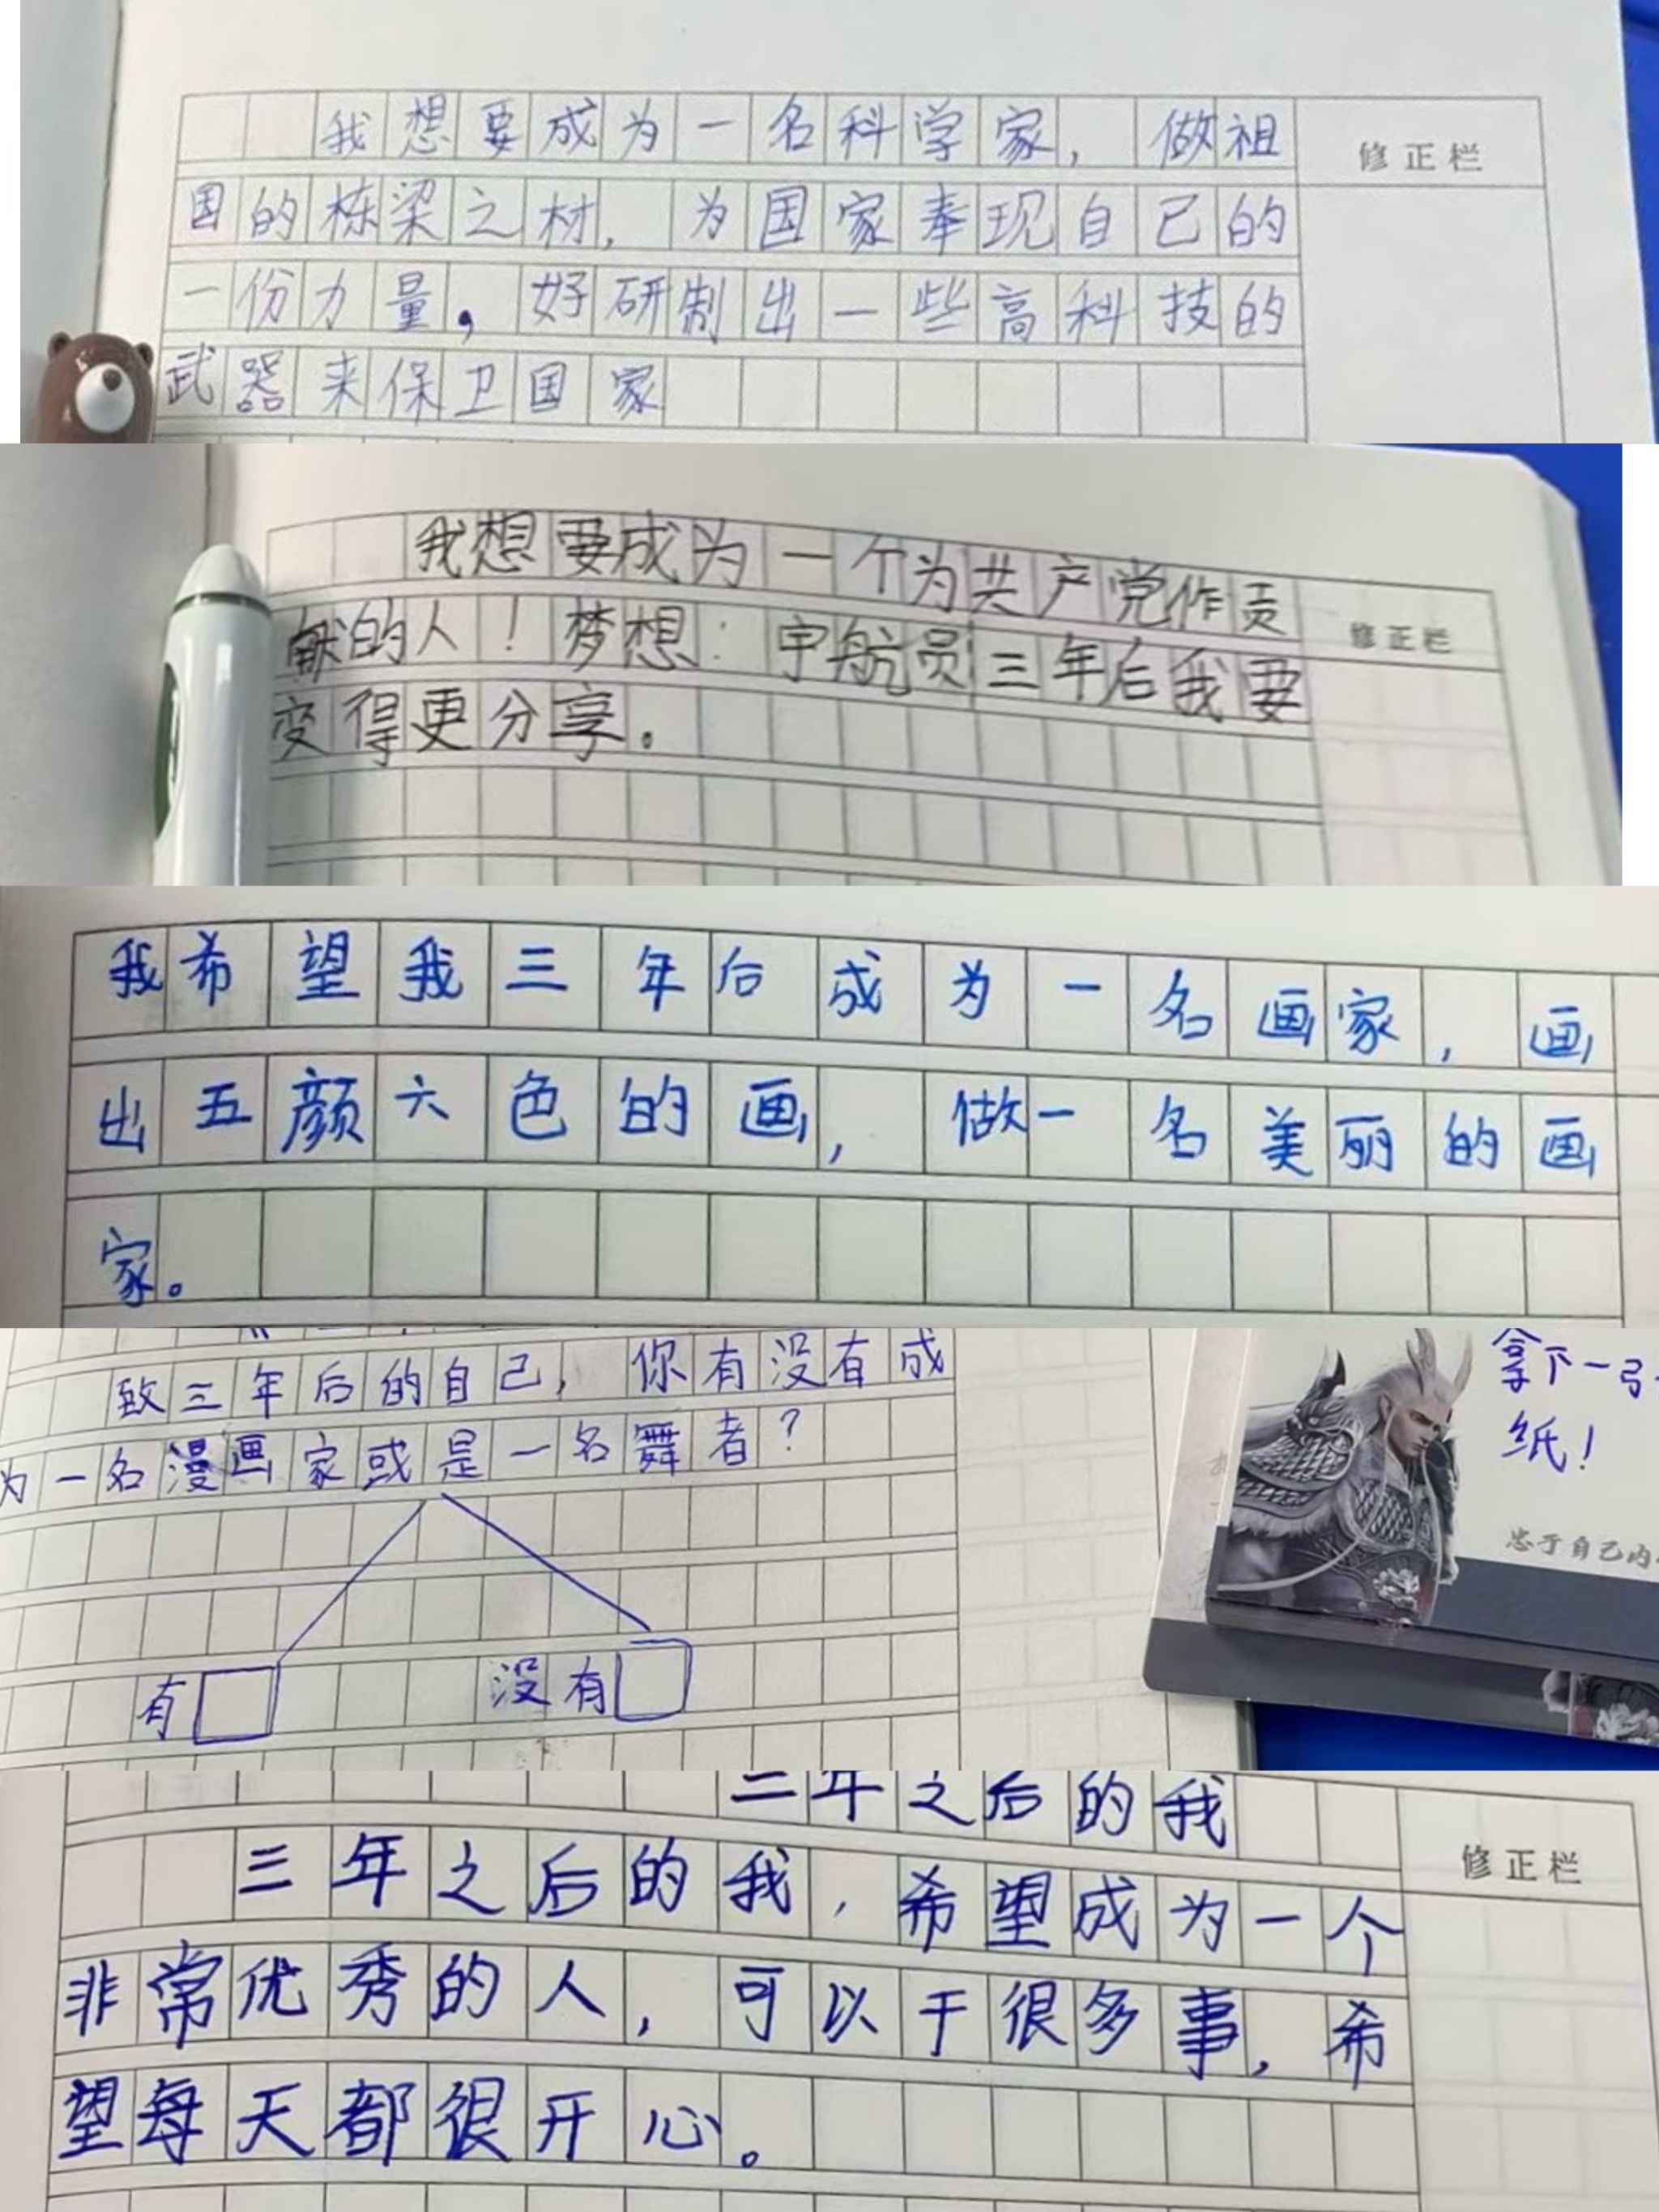 我想要成为一名科学家，做祖
修正栏
国的栋梁之材，为国家奉现自己的
一份力量，好研制出一些高科技的
武器来保卫国家
我想要成为一个为共产党作贡
修正栏
献的人！梦想：宇航员三年后我要
变得更分享。
我希望我三年后成为一名画家，画
出五颜六色的画，做一名美丽的画
家。
致三年后的自己，你有没有成
为一名漫画家或是一名舞者？
有 没有
拿下一弓
纸！
忠于自己内
三年之后的我
修正栏
三年之后的我，希望成为一个
非常优秀的人，可以干很多事，希
望每天都很开心。